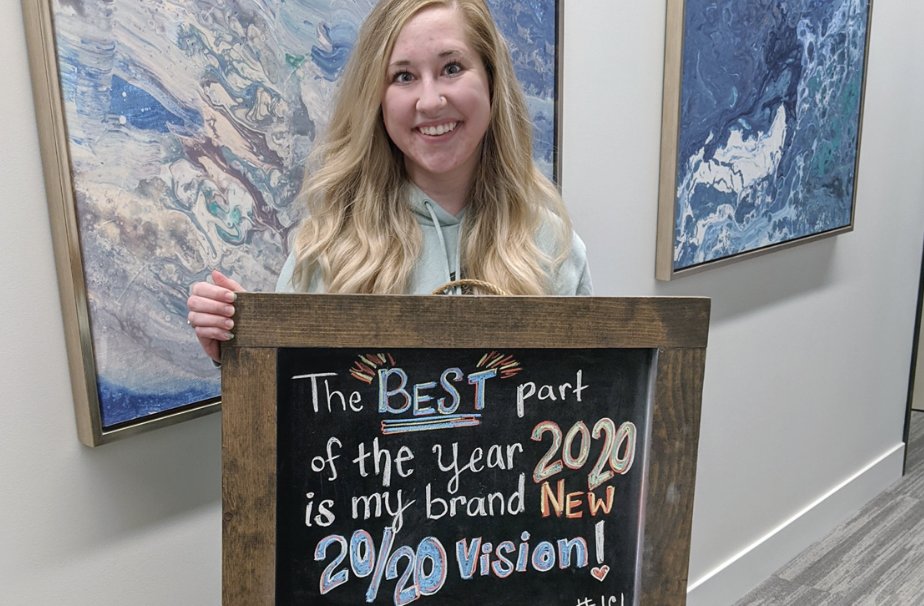 The BEST part
of the year 2020
is my brand NEW
20/20 Vision!